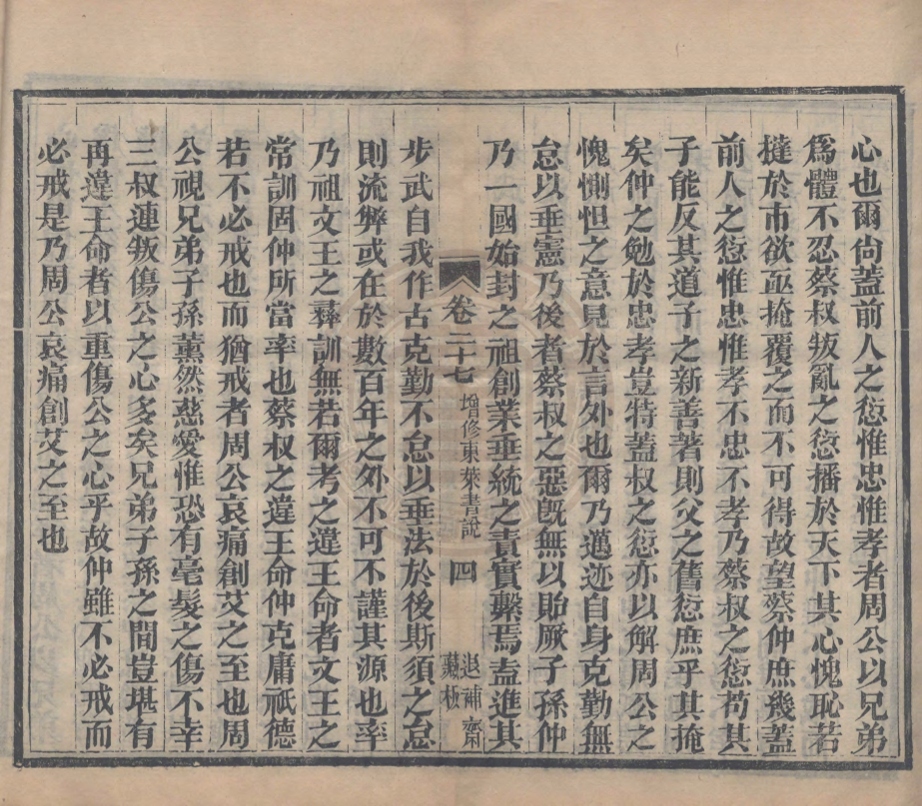 心也爾尙蓋前人之愆惟忠惟孝者周公以兄弟
爲體不忍蔡叔叛亂之愆播於天下其心愧恥若
撻於市欲亟掩覆之而不可得故望蔡仲庶幾蓋
前人之愆惟忠惟孝不忠不孝乃蔡叔之愆苟其
子能反其道子之新善著則父之舊愆庶乎其掩
矣仲之勉於忠孝豈特蓋叔之愆亦以解周公之
愧惻怛之意見於言外也爾乃邁迹自身克勤無
怠以垂憲乃後者蔡叔之惡旣無以貽厥子孫仲
乃一國始封之祖創業垂統之責實繫焉盍進其
卷二十七 增修東萊書說 四 退補齋藏板
步武自我作古克勤不怠以垂法於後斯須之怠
則流弊或在於數百年之外不可不謹其源也率
乃祖文王之彝訓無若爾考之違王命者文王之
常訓固仲所當率也蔡叔之違王命仲克庸祇德
若不必戒也而猶戒者周公哀痛創艾之至也周
公視兄弟子孫薰然慈愛惟恐有毫髮之傷不幸
三叔連叛傷公之心多矣兄弟子孫之間豈堪有
再違王命者以重傷公之心乎故仲雖不必戒而
必戒是乃周公哀痛創艾之至也